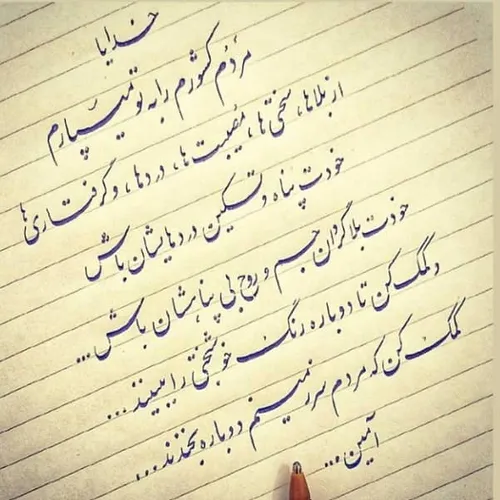 خدایا
مردم کشورم را به تو میسپارم
از بلاها، سختی ها، مصیبت ها، دردها، و گرفتاری ها
خودت پناه و تسکین دردهایشان باش
خودت بلاگردان جسم و روح بی پناهشان باش...
و کمک کن تا دوباره رنگ خوشبختی را ببینند...
کمک کن که مردم سرزمینم دوباره بخندند...
آمین...